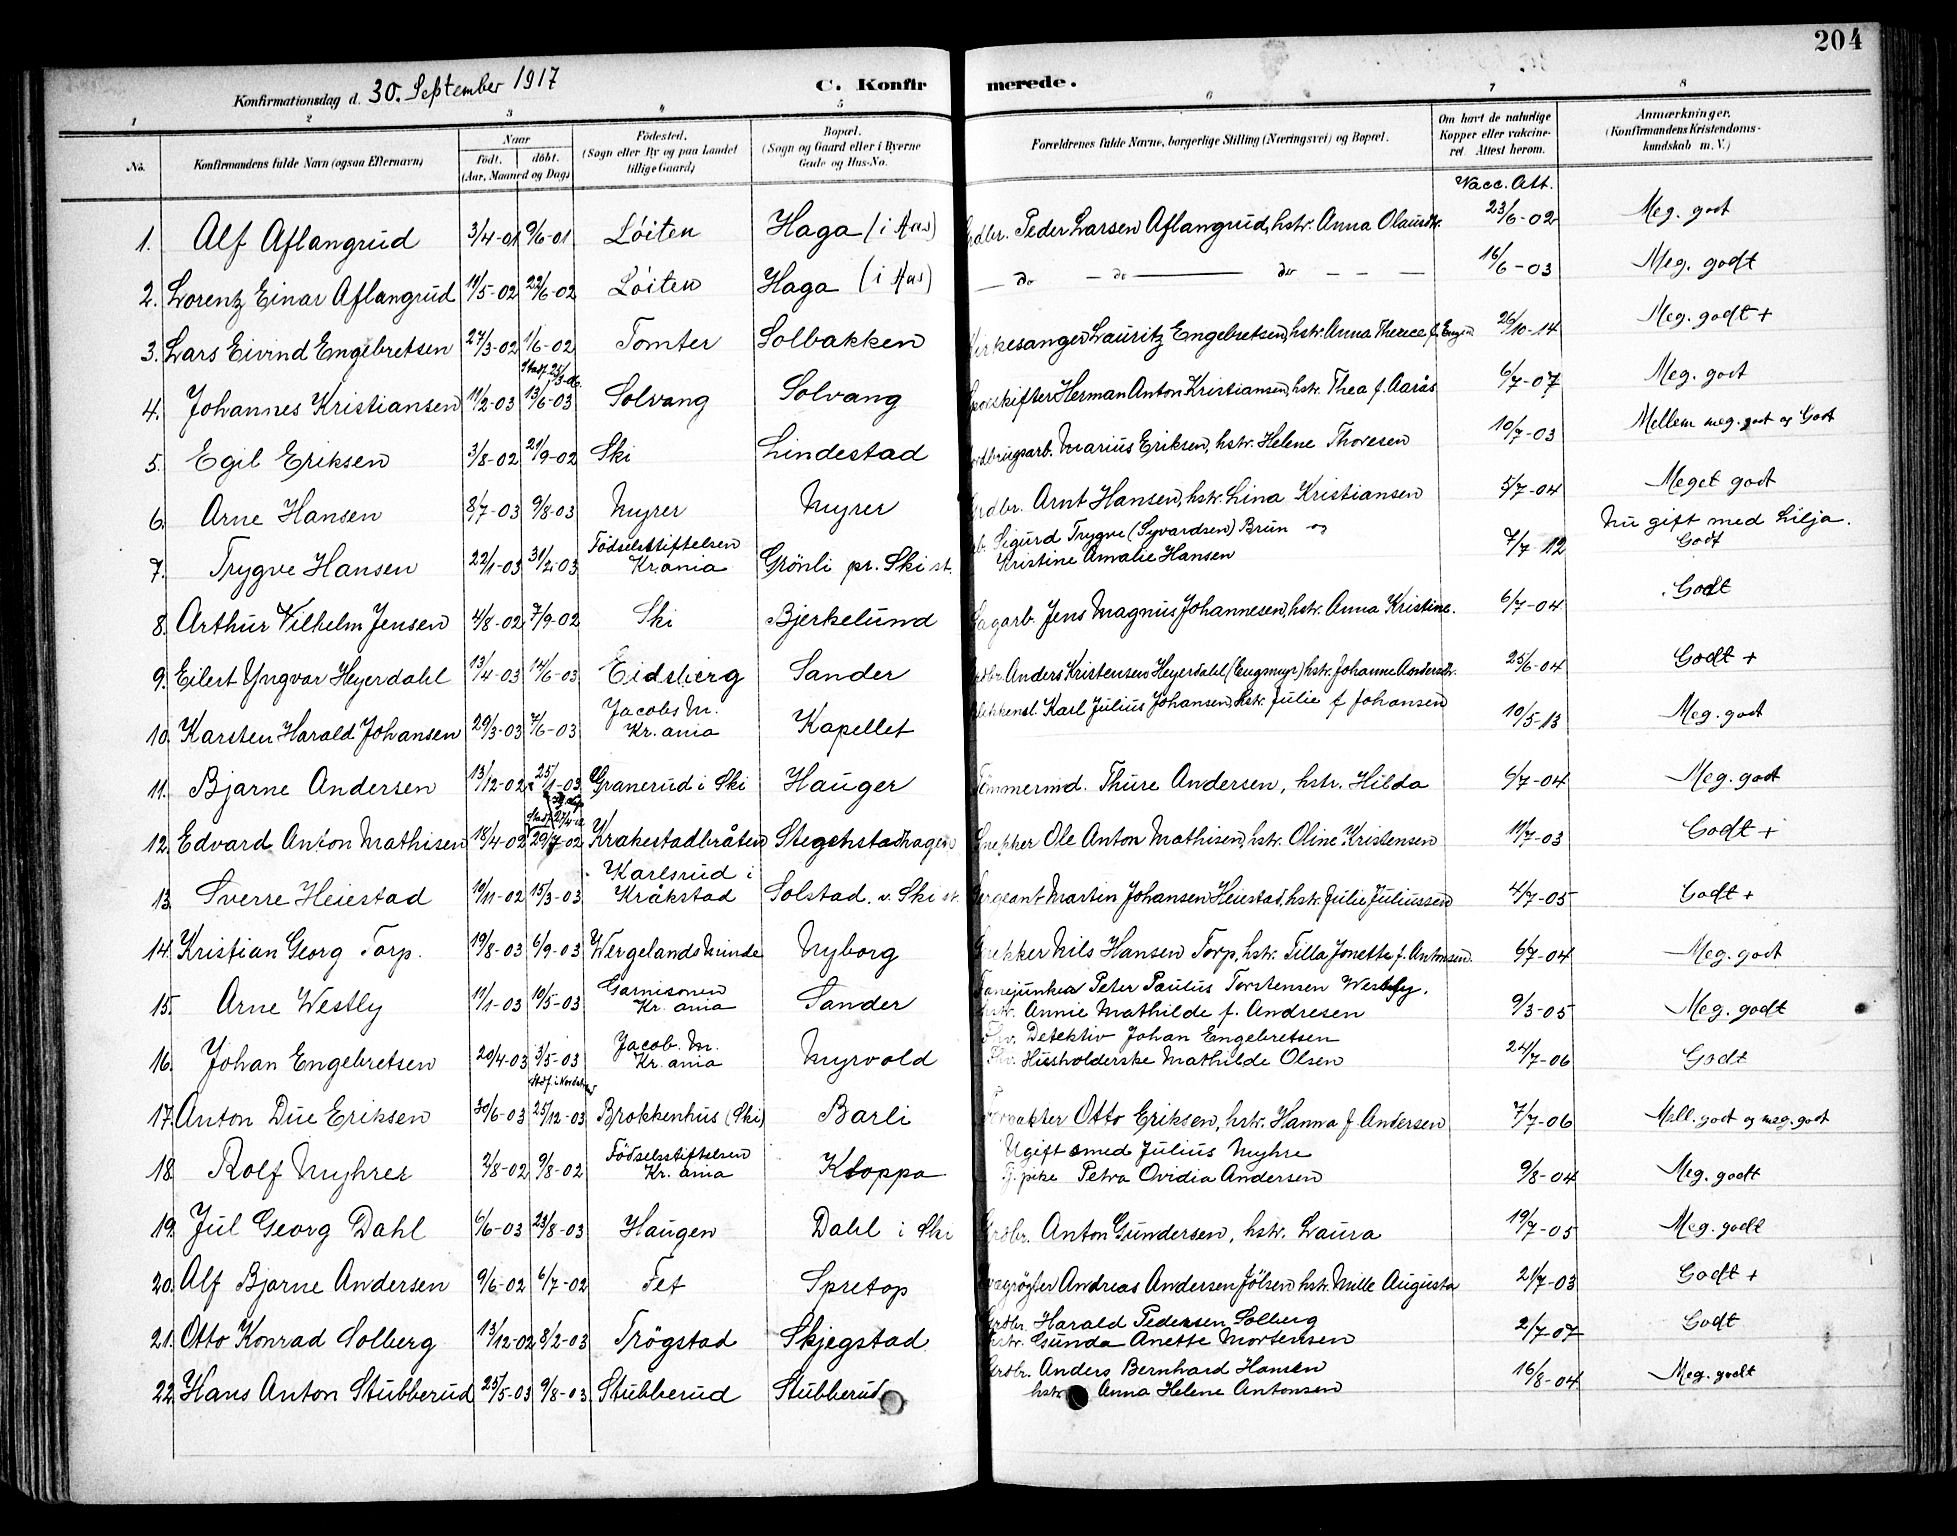 204
Konfirmationsdag d. 30. September 1917
C. Konfirmerede.
1 2 3 4 5 6 7 8
No. Konfirmandens fulde Navn (ogsaa Efternavn) Naar født. døbt. (Aar, Maaned og Dag) Fødested. (Sogn eller By og paa Landet tillige Gaard) Bopæl. (Sogn og Gaard eller i Byerne Gade og Hus-No. Forældrenes fulde Navne, borgerlige Stilling (Næringsvei) og Bopæl. Om havt de naturlige Kopper eller vakcineret. Attest herom. Anmærkninger. (Konfirmandens Kristendomskundskab m. V.)
Vacc. Att.
1. Alf Aflangrud 3/4-01 9/6-01 Løiten Haga (i Aas) Peder Larsen Aflangrud, hstr. Anna Olausdtr. 23/6-02 Meg. godt
2. Lorenz Einar Aflangrud 11/5-02 22/6-02 Løiten Haga (i Aas) — do — do — do — — — 16/6-03 Meg. godt
3. Lars Eivind Engebretsen 27/3-02 1/6-02 Tomter Solbakken Kirkesanger Lauritz Engebretsen, hstr. Anna Therece f. Engen 26/10-14 Meg. godt +
4. Johannes Kristiansen 11/2-03 13/6-03 Solvang Solvang Sporskifter Herman Anton Kristiansen, hstr. Thea f. Aarås 6/7-07 Meg. godt
5. Egil Eriksen 3/8-02 21/9-02 Ski Lindestad Jordbrugsarb. Marius Eriksen, hstr. Helene Thoresen 10/7-03 Mellem meg. godt og Godt
6. Arne Hansen 8/7-03 9/8-03 Myrer Myrer Grdbr. Arnt Hansen, hstr. Lina Kristiansen 5/7-04 Meget godt
7. Trygve Hansen 22/1-03 31/2-03 Fødselsstiftelsen Kr.ania Grönli pr. Ski st. Sigurd Trygve (Syvardsen) Brun og Kristine Amalie Hansen 7/7-12 Nu gift med Lilja. Godt
8. Arthur Vilhelm Jensen 4/8-02 7/9-02 Ski Bjerkelund Sagarb. Jens Magnus Johannesen, hstr. Anna Kristine. 6/7-04 Godt
9. Eilert Yngvar Heyerdahl 13/4-03 14/6-03 Eidsberg Sander Anders Kristensen Heyerdahl (Engmyr) hstr. Johanne Andersdtr. 25/6-04 Godt +
10. Karsten Harald Johansen 29/3-03 7/6-03 Jacobs M. Kr.ania Kapellet Karl Julius Johansen, hstr. Julie f. Johansen 10/5-13 Meg. godt
11. Bjarne Andersen 13/12-02 25/1-03 Granerud i Ski Hauger Tömmermd. Thure Andersen, hstr. Hilda 6/7-04 Meg. godt
12. Edvard Anton Mathisen 18/4-02 29/7-02 Krakestadbråten Stegenstadhagen Snekker Ole Anton Mathisen, hstr. Oline Kristensen 11/7-03 Godt +
13. Sverre Heiestad 19/11-02 15/3-03 Karlsrud i Kråkstad Solstad v. Ski st. Sergeant Martin Johansen Heiestad, hstr. Julie Juliussen 4/7-05 Godt +
14. Kristian Georg Torp. 19/8-03 6/9-03 Wergelands Minde Nyborg Snekker Nils Hansen Torp, hstr. Tilla Jonette f. Antonsen. 6/7-04 Meg. godt
15. Arne Westly 11/1-03 19/5-03 Garnisonen Kr.ania Sander Fanejunker Peter Paulus Torstensen Westly. hstr. Annie Mathilde f. Andresen 9/3-05 Meg. godt
16. Johan Engebretsen 20/4-03 3/5-03 Jacob. M. Kr.ania Myrvold Fhv. Detektiv Johan Engebretsen Fhv. Husholderske Mathilde Olsen 24/7-06 Godt
17. Anton Due Eriksen 30/6-03 25/12-03 Brokkenhus (Ski) Barli Otto Eriksen, hstr. Hanna f. Andersen 7/7-06 Mell. godt og meg. godt
18. Rolf Myhrer 2/8-02 9/8-02 Födselsstiftelsen Kr.ania Kloppa Ugift smed Julius Myhre pike Petra Ovidia Andersen 9/8-04 Meg. godt
19. Jul Georg Dahl 6/6-03 23/8-03 Haugen Dahl i Ski Grdbr. Anton Gundersen, hstr. Laura 19/7-05 Meg. godt
20. Alf Bjarne Andersen 9/6-02 6/7-02 Fet Spretop Andreas Andersen Jölsen hstr. Mille Augusta 21/7-03 Godt +
21. Otto Konrad Solberg 13/12-02 8/2-03 Trögstad Skjegstad Grdbr. Harald Pedersen Solberg hstr. Gunda Anette Mortensen 2/7-07 Godt
22. Hans Anton Stubberud 25/5-03 9/8-03 Stubberud Stubberud Grdbr. Anders Bernhard Hansen hstr. Anna Helene Antonsen 16/8-04 Meg. godt